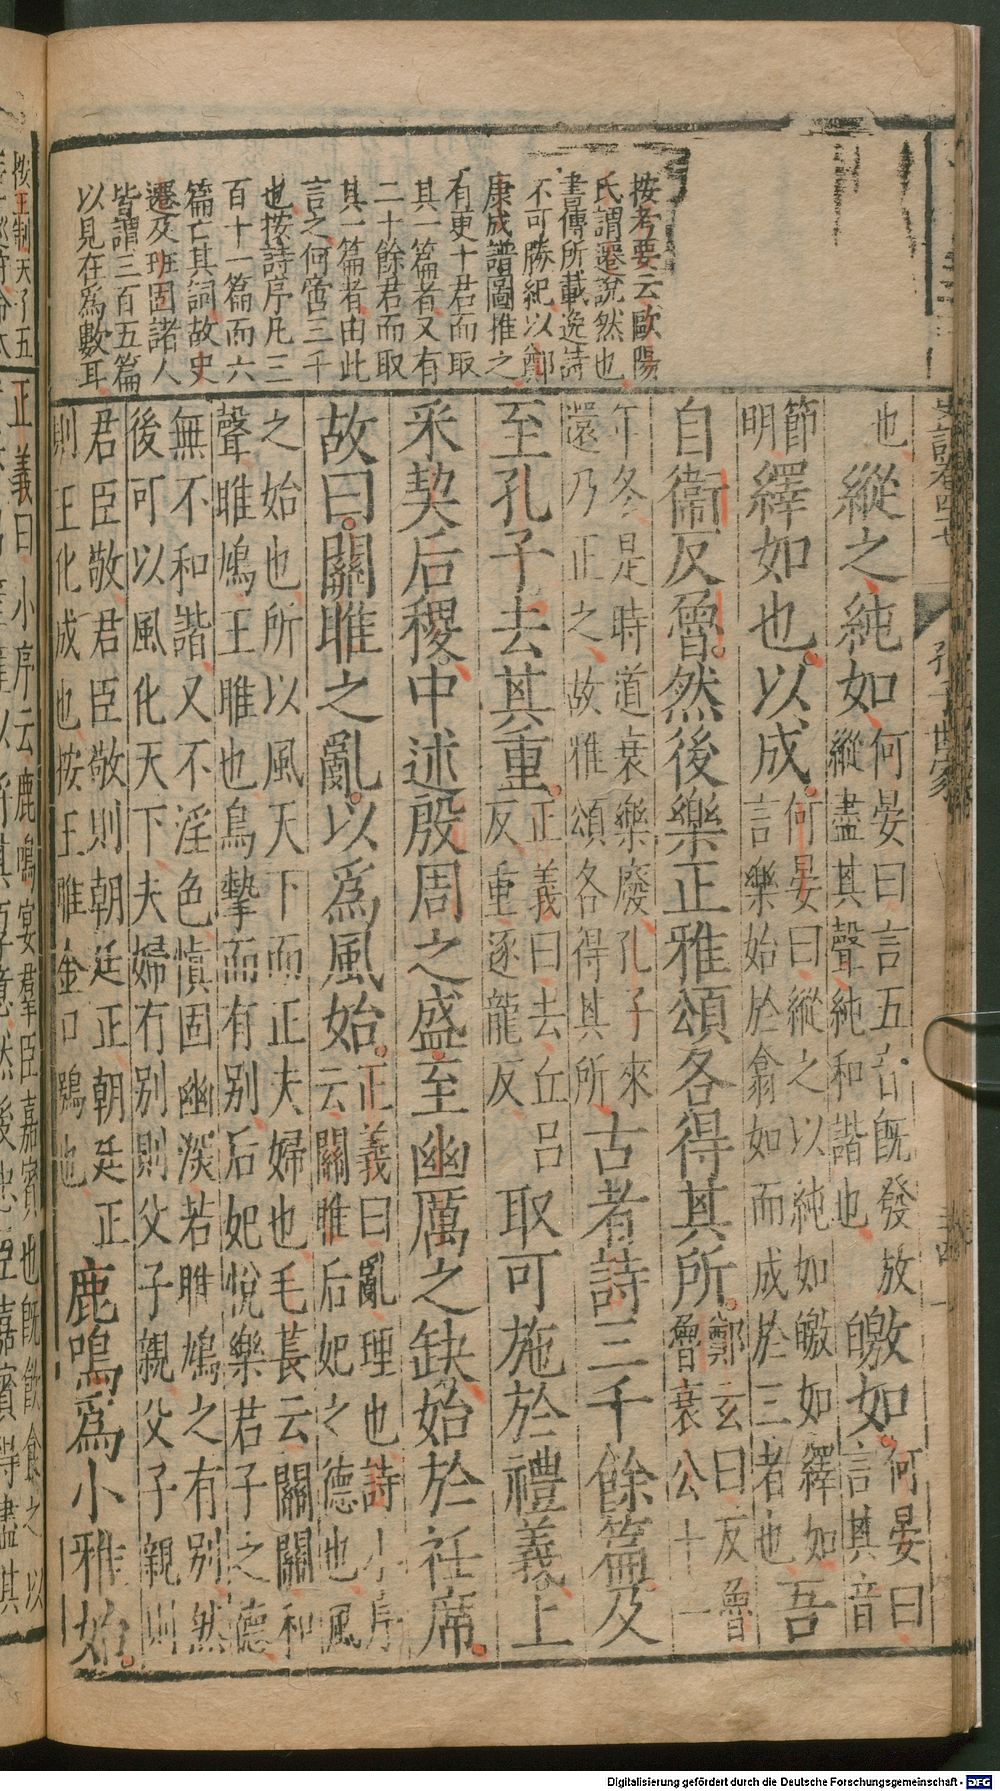 史記卷四七 孔子世家
按考要云歐陽
氏謂遷說然也
書傳所載逸詩
不可勝紀以鄭
康成譜圖推之
有更十君而取
其一篇者又有
二十餘君而取
其一篇者由此
言之何啻三千
也按詩序凡三
百十一篇而六
篇亡其詞故史
遷及班固諸人
皆謂三百五篇
以見在爲數耳
也、縱之純如、何晏曰言五音旣發放縱盡其聲純和諧也皦如。何晏曰言其音
節明繹如也。以成。何晏曰縱之以純如皦如繹如言樂始於翕如而成於三者也吾
自衛反魯。然後樂正雅頌各得其所。鄭玄曰反魯魯哀公十一
年冬是時道衰樂廢孔子來還乃正之故雅頌各得其所古者詩三千餘篇及
至孔子去其重。正義曰去丘呂反重逐龍反取可施於禮義上
采契后稷。中述殷周之盛至幽厲之缺始於衽席。
故曰。關雎之亂。以爲風始。正義曰亂理也詩小序云關雎后妃之德也風
之始也所以風天下而正夫婦也毛萇云關關和聲雎鳩王雎也鳥摯而有別后妃悅樂君子之德
無不和諧又不淫色慎固幽深若雎鳩之有別然後可以風化天下夫婦有別則父子親父子親則
君臣敬君臣敬則朝廷正朝廷正則王化成也按王雎金口鶚也鹿鳴爲小雅始。
按王制天子五
正義曰小序云鹿鳴宴群臣嘉賓也旣飲食之
Digitalisierung gefördert durch die Deutsche Forschungsgemeinschaft - DFG